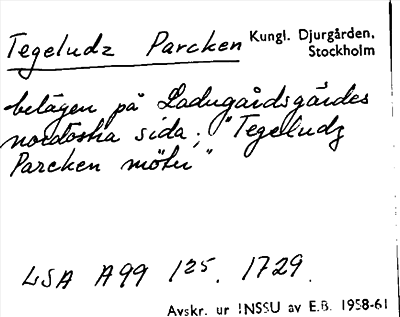 Tegeludz Parcken
Kungl. Djurgården,
Stockholm
belägen på Ladugårdsgärdes
nordöstra sida; "Tegeludz
Parcken möter"
LSA A99 125. 1729.
Avskr. ur INSSU av E.B. 1958-61